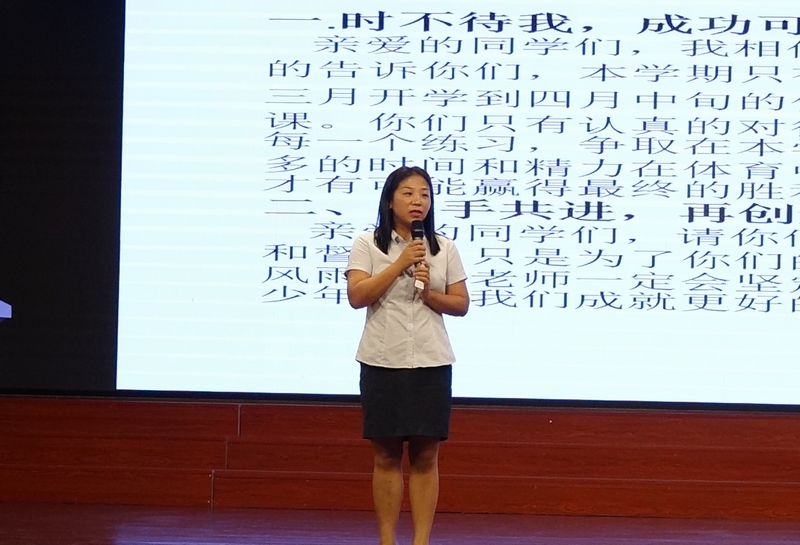 一.时不待我，成功可
亲爱的同学们，我相信
的告诉你们，本学期只
三月开学到四月中旬的
课。你们只有认真的对待
每一个练习，争取在本学
多的时间和精力在体育
才有可能赢得最终的胜利
二、 手共进，再创
亲 的同学们，请你们
和督 只是为了你们的
风雨 老师一定会坚定
少年 我们成就更好的